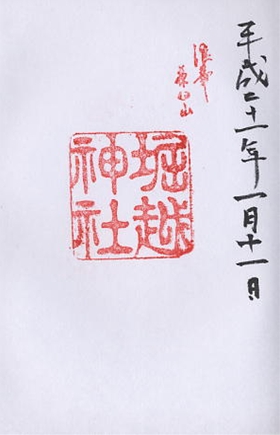 平成二十一年一月十一日
浪華
茶臼山
堀越
神社